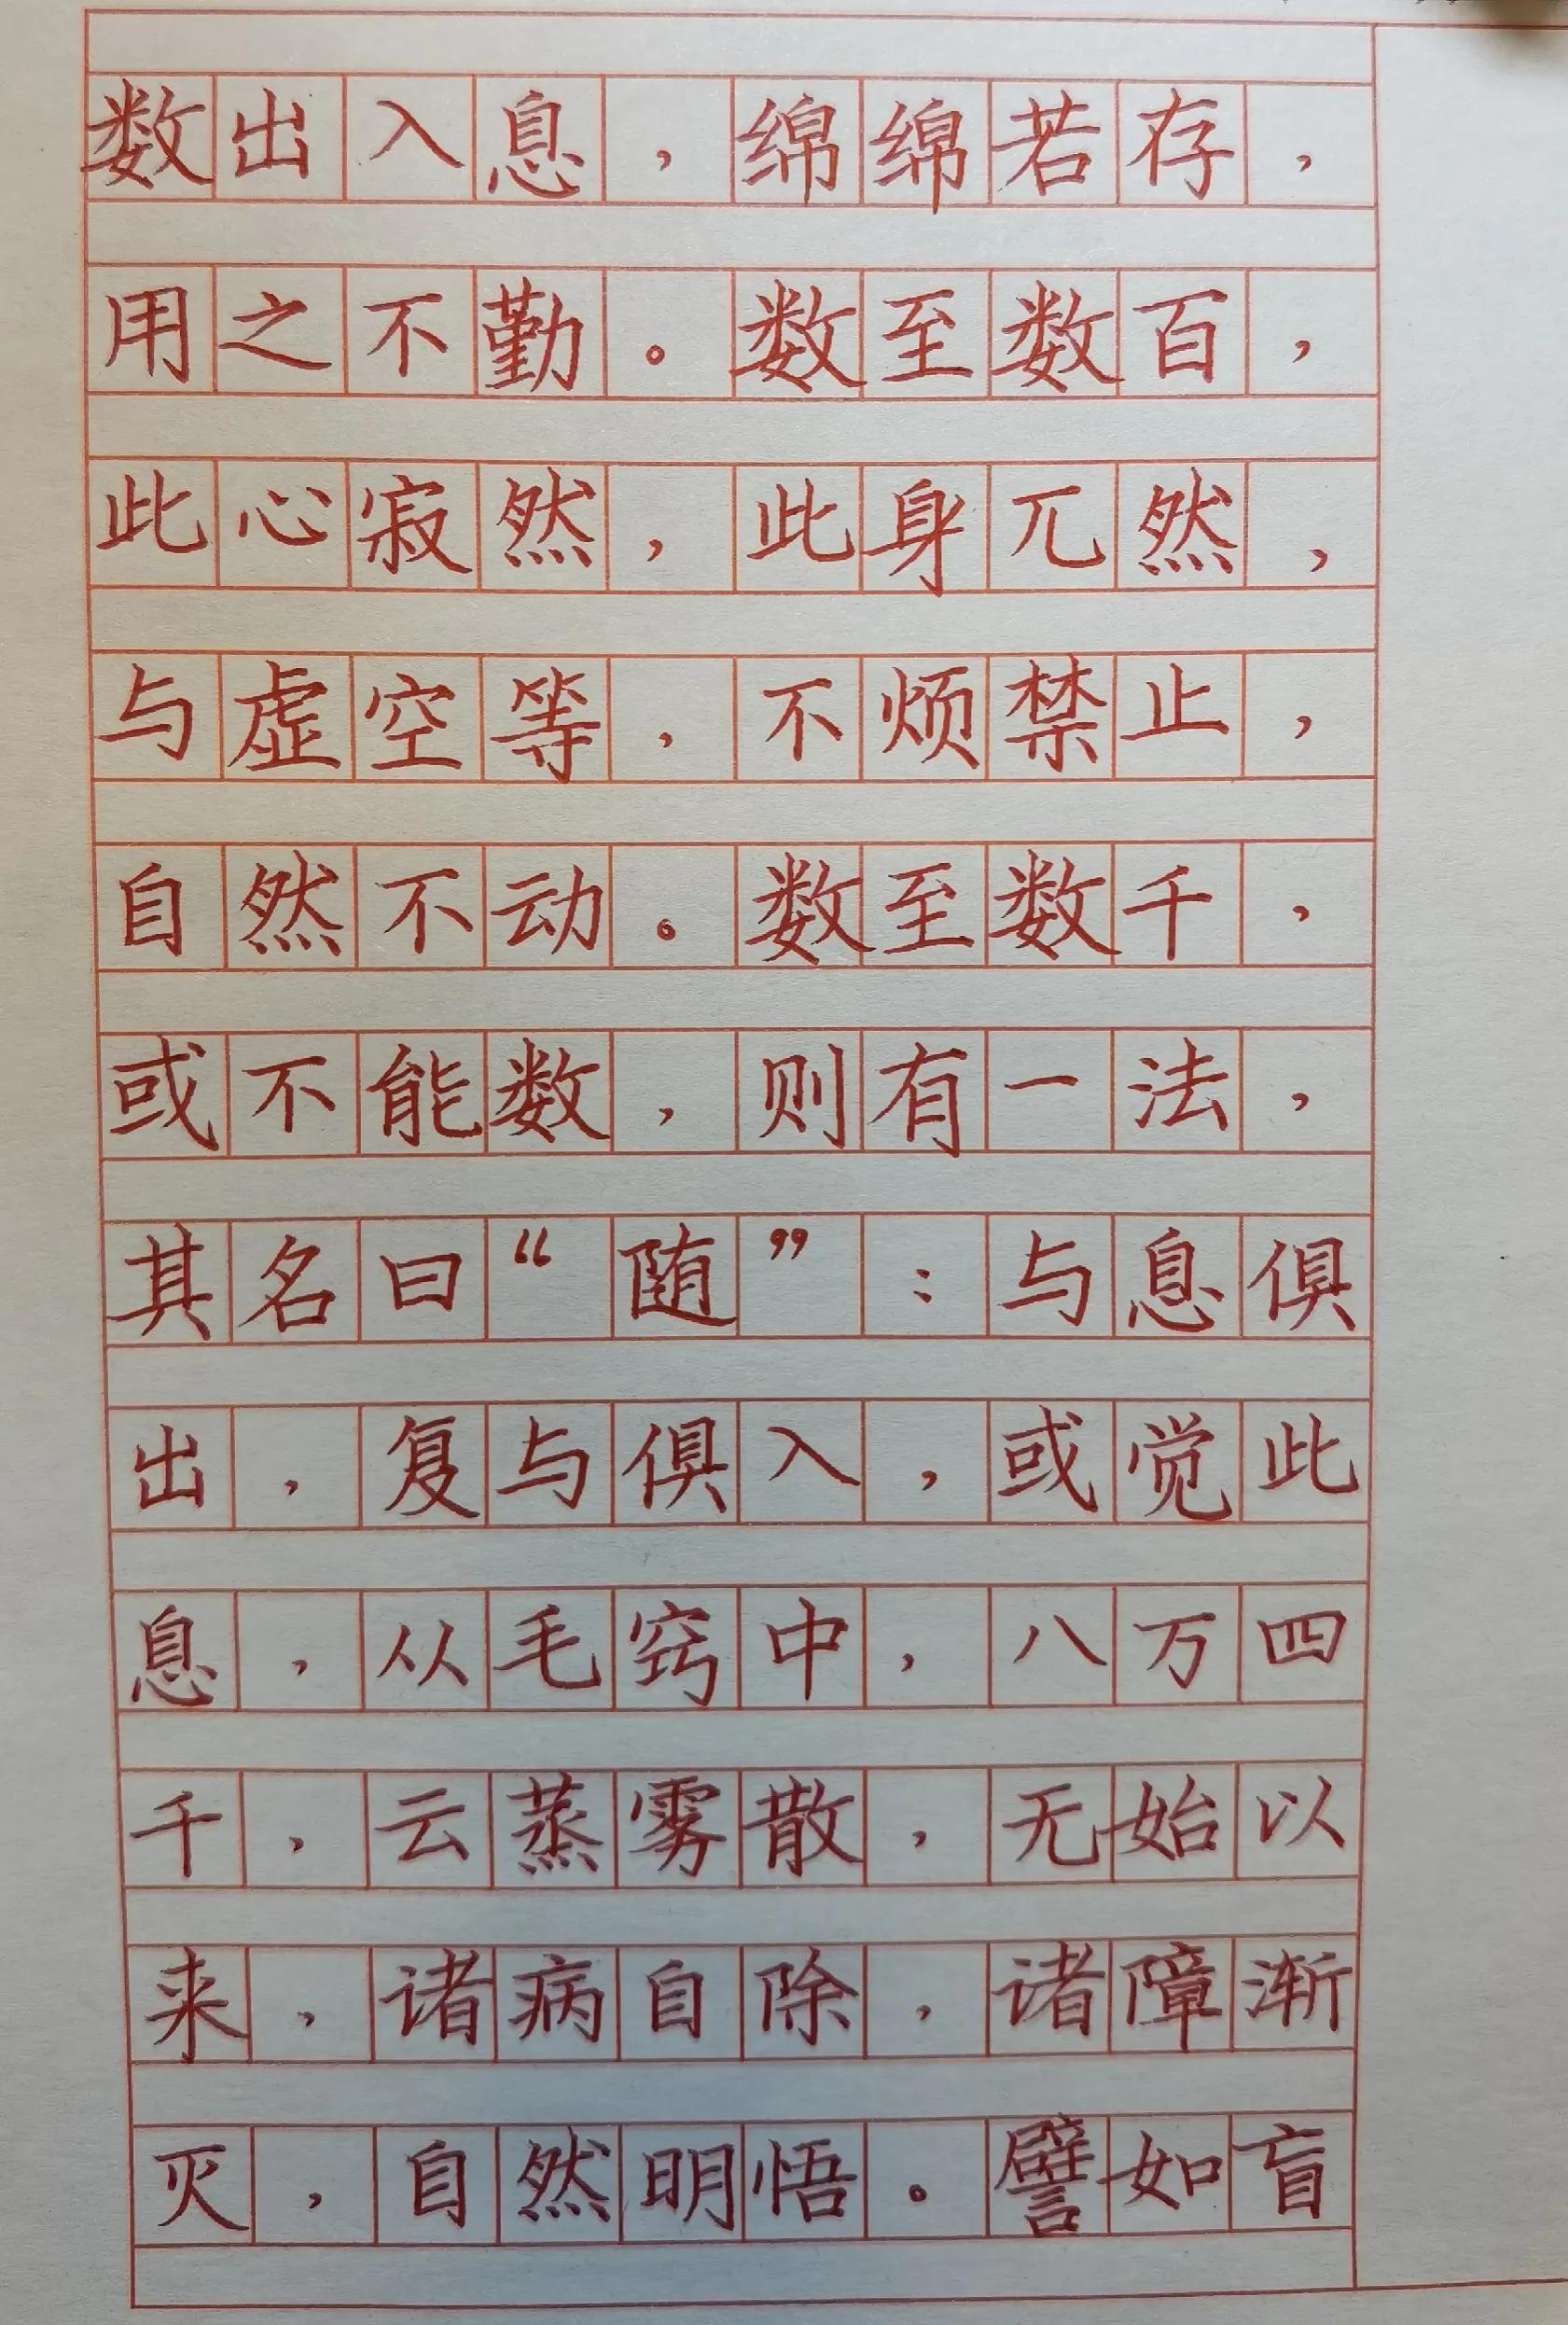 数出入息，绵绵若存，
用之不勤。数至数百，
此心寂然，此身兀然，
与虚空等，不烦禁止，
自然不动。数至数千，
或不能数，则有一法，
其名曰“随”：与息俱
出，复与俱入，或觉此
息，从毛窍中，八万四
千，云蒸雾散，无始以
来，诸病自除，诸障渐
灭，自然明悟。譬如盲